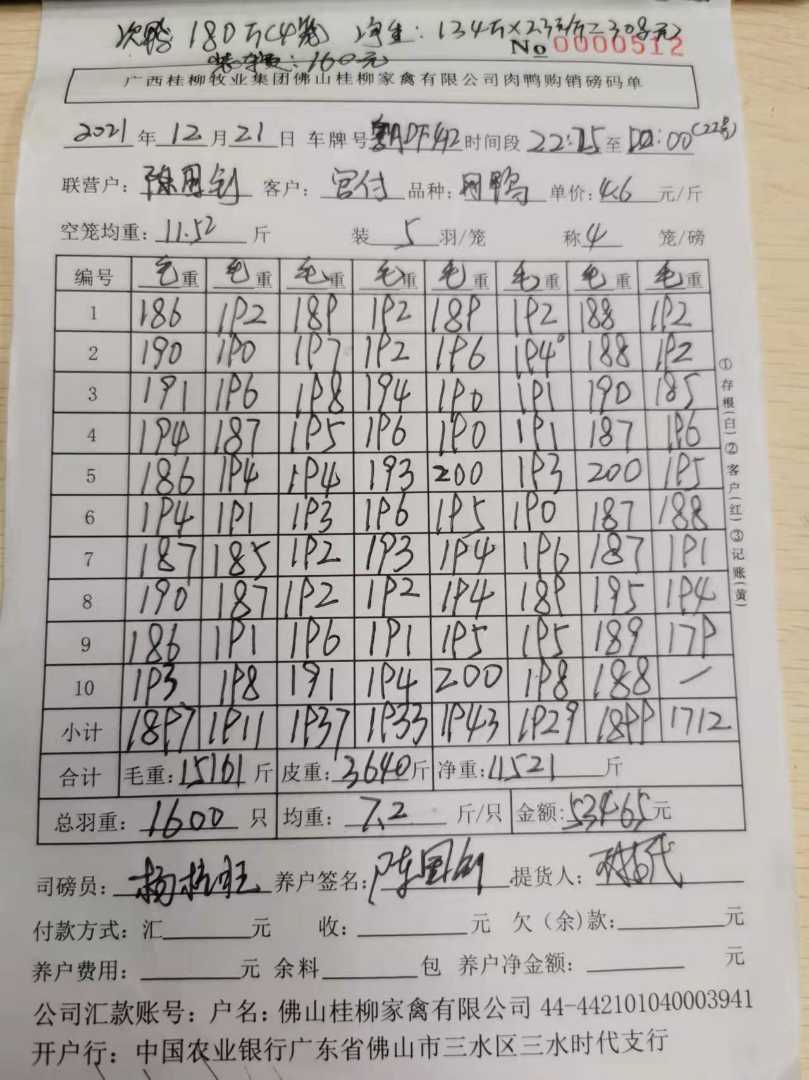 次鸭 180斤(4笼 净重: 134斤×2.3元/斤=308元
装车费: 160元
No 0000512
广西桂柳牧业集团佛山桂柳家禽有限公司肉鸭购销磅码单
2021 年 12 月 21 日 车牌号 时间段 22:15 至 00:00 (22号)
联营户: 陈国钊 客户: 宫付 品种: 肉鸭 单价: 4.6 元/斤
空笼均重: 11.52 斤 装 5 羽/笼 称 4 笼/磅
编号 毛重 毛重 毛重 毛重 毛重 毛重 毛重 毛重
1 186 192 189 192 189 192 188 192
2 190 190 197 192 196 194 188 192
3 191 196 198 194 190 191 190 185
4 194 187 195 196 190 191 187 196
5 186 194 194 193 200 193 200 195
6 194 191 193 196 195 190 187 188
7 187 185 192 193 194 196 187 191
8 190 187 192 192 194 189 195 194
9 186 191 196 191 195 195 189 179
10 193 198 191 194 200 198 188 —
小计 1897 1911 1937 1933 1943 1929 1899 1712
合计 毛重: 15161 斤 皮重: 3640 斤 净重: 11521 斤
总羽重: 1600 只 均重: 7.2 斤/只 金额: 53465 元
①存根(白)②客户(红)③记账(黄)
司磅员: 养户签名: 陈国钊 提货人:
付款方式: 汇 元 收: 元 欠(余)款: 元
养户费用: 元 余料 包 养户净金额: 元
公司汇款账号: 户名: 佛山桂柳家禽有限公司 44-442101040003941
开户行: 中国农业银行广东省佛山市三水区三水时代支行